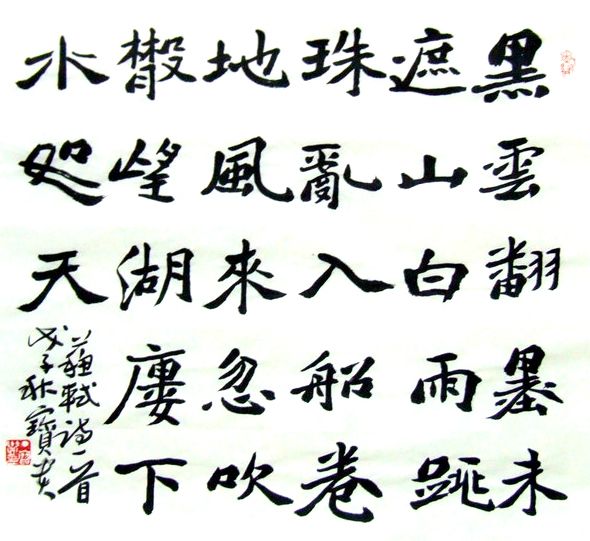 黑雲翻墨未
遮山白雨跳
珠亂入船卷
地風來忽吹
散望湖廔下
水如天
蘇軾詩一首
戊子秋寶